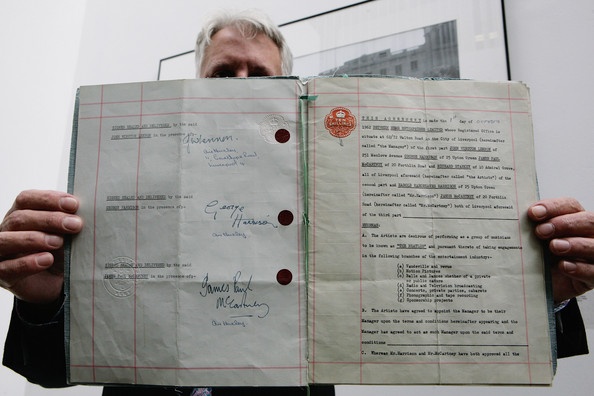 SIGNED SEALED AND DELIVERED by the said
JOHN WINSTON LENNON in the presence of:
JWLennon.
SIGNED SEALED AND DELIVERED by the said
GEORGE HARRISON in the presence of:
George
Harrison
SIGNED SEALED AND DELIVERED by the said
JAMES PAUL McCARTNEY in the presence of:
James Paul
McCartney
THIS AGREEMENT is made the 1st day of
1962 BETWEEN NEMS ENTERPRISES LIMITED whose Registered Office is
situate at in the City of Liverpool (hereinafter
called "the Manager") of the first part JOHN WINSTON LENNON of
251 Menlove Avenue GEORGE HARRISON of 25 Upton Green JAMES PAUL
McCARTNEY of 20 Forthlin Road and RICHARD STARKEY of 10 Admiral Grove,
all of Liverpool aforesaid (hereinafter called "the Artists") of the
second part and HAROLD HARGREAVES HARRISON of 25 Upton Green
(hereinafter called "Mr.Harrison") JAMES McCARTNEY of 20 Forthlin
Road (hereinafter called "Mr.McCartney") both of Liverpool aforesaid
of the third part
WHEREAS:
A. The Artists are desirous of performing as a group of musicians
to be known as "THE BEATLES" and pursuant thereto of taking engagements
in the following branches of the entertainment industry:
(a) Vaudeville and revue
(b) Motion Pictures
(c) Balls and Dances whether of a private
or public nature
(d) Radio and Television broadcasting
(e) Concerts, private parties, cabarets
(f) Phonographic and tape recording
(g) Sponsorship projects
B. The Artists have agreed to appoint the Manager to be their
Manager upon the terms and conditions hereinafter appearing and the
Manager has agreed to act as such Manager upon the said terms and
conditions
C. Whereas Mr.Harrison and Mr.McCartney have both approved all the